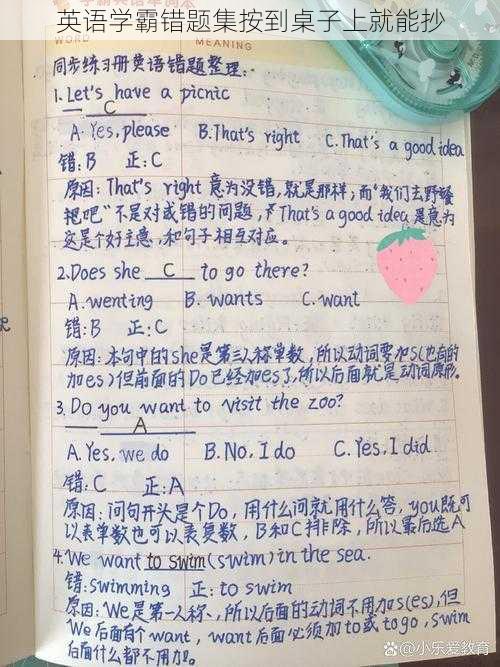 英语学霸错题集按到桌子上就能抄
WORD
MEANING
同步练习册英语错题整理:
1. Let's have a picnic
C
A. Yes, please B. That's right C. That's a good idea
错:B 正:C
原因:That's right 意为没错,就是那样;而"我们去野餐
把吧"不是对或错的问题,That's a good idea 是意为
这是个好主意,和句子相互对应。
2. Does she C to go there?
A. wenting B. wants C. want
错:B 正:C
原因:本句中的she是第三人称单数,所以动词要加s(也有的
加es)但前面的Do已经加es了,所以后面就是动词原形。
3. Do you want to visit the zoo?
A
A. Yes, we do B. No, I do C. Yes, I did
错:C 正:A
原因:问句开头是个Do,用什么问就用什么答,you既可
以表单数也可以表复数,B和C排除,所以最后选A
4. We want to swim (swim) in the sea.
错:swimming 正:to swim
原因:We是第一人称、所以后面的动词不用加s(es),但
We后面有个want,want后面必须加to或to go,swim
后面什么都不用加。
@小乐爱教育